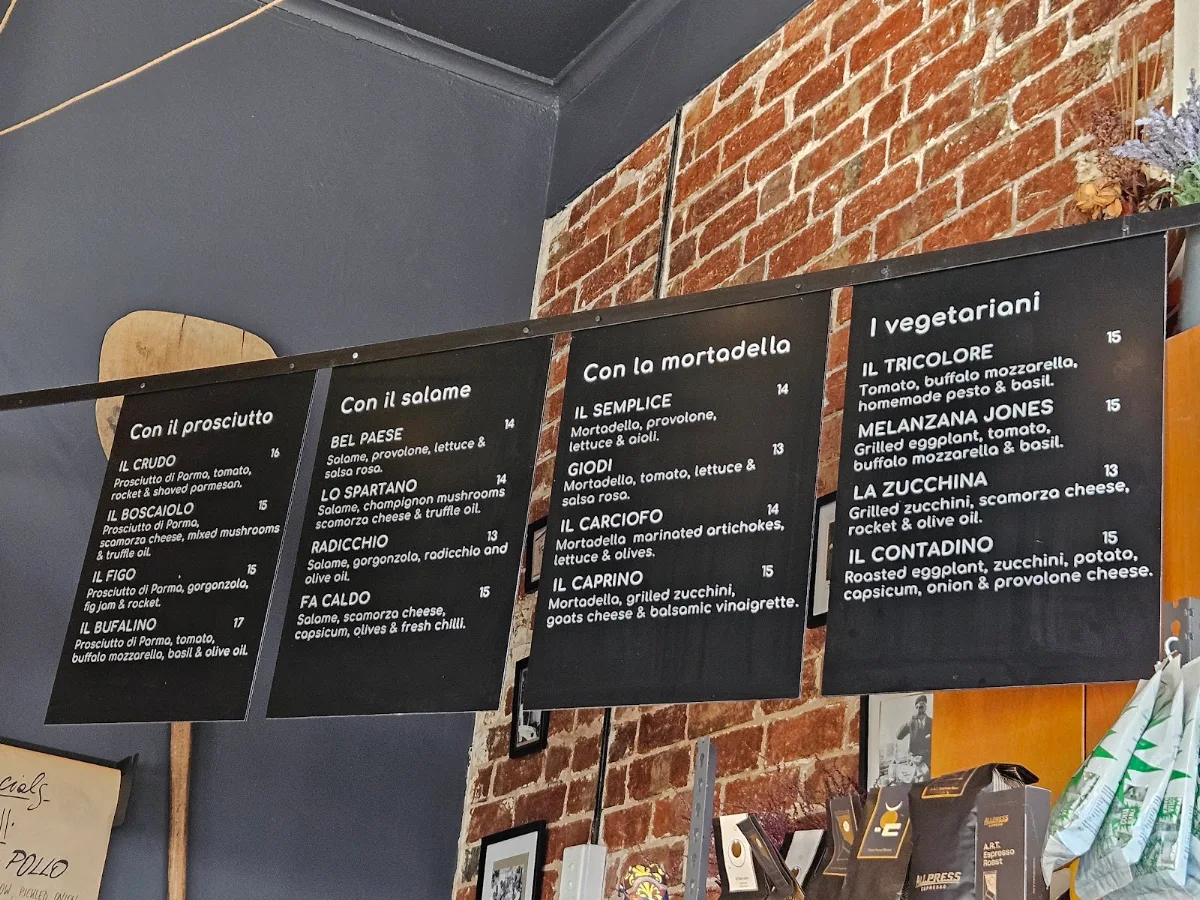 Con il prosciutto
IL CRUDO 16
Prosciutto di Parma, tomato,
rocket & shaved parmesan.
IL BOSCAIOLO 15
Prosciutto di Parma,
scamorza cheese, mixed mushrooms
& truffle oil.
IL FIGO 15
Prosciutto di Parma, gorgonzola,
fig jam & rocket.
IL BUFALINO 17
Prosciutto di Parma, tomato,
buffalo mozzarella, basil & olive oil.
Con il salame
BEL PAESE 14
Salame, provolone, lettuce &
salsa rosa.
LO SPARTANO 14
Salame, champignon mushrooms
scamorza cheese & truffle oil.
RADICCHIO 13
Salame, gorgonzola, radicchio and
olive oil.
FA CALDO 15
Salame, scamorza cheese,
capsicum, olives & fresh chilli.
Con la mortadella
IL SEMPLICE 14
Mortadella, provolone,
lettuce & aioli.
GIODI 13
Mortadella, tomato, lettuce &
salsa rosa.
IL CARCIOFO 14
Mortadella marinated artichokes,
lettuce & olives.
IL CAPRINO 15
Mortadella, grilled zucchini,
goats cheese & balsamic vinaigrette.
I vegetariani
IL TRICOLORE 15
Tomato, buffalo mozzarella,
homemade pesto & basil.
MELANZANA JONES 15
Grilled eggplant, tomato,
buffalo mozzarella & basil.
LA ZUCCHINA 13
Grilled zucchini, scamorza cheese,
rocket & olive oil.
IL CONTADINO 15
Roasted eggplant, zucchini, potato,
capsicum, onion & provolone cheese.
POLLO
PICKLED ONION
ALLPRESS
ESPRESSO
ALLPRESS
A.R.T.
Espresso
Roast